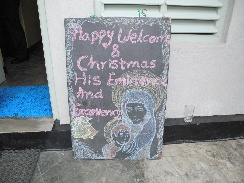 Happy Welcome
&
Christmas
His Eminence
And
Excellency